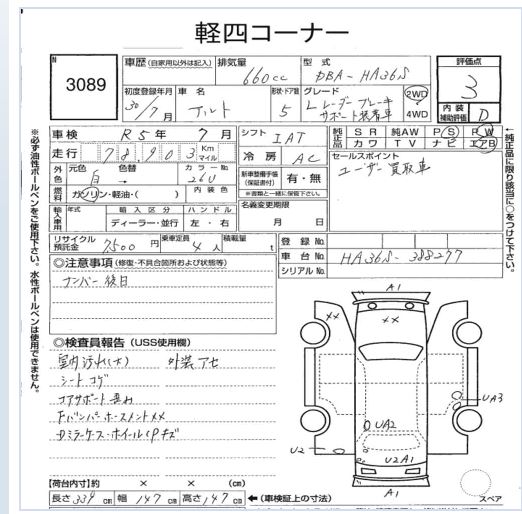 軽四コーナー
N
3089
車歴 (自家用以外は記入) 排気量 660cc 型式 DBA-HA36S
評価点 3
初度登録年月 30/7月 車名 アルト 形状・ドア数 5 グレード L レーダーブレーキサポート装着車 2WD 4WD
内装補助評価 D
車検 R5年 7月 シフト IAT
純正品 SR 純AW PS PW
純正品 カワ TV ナビ エアB
走行 78,903 Km マイル 冷房 AC
セールスポイント
ユーザー買取車
外色 元色 白 → 色替 カラーNo. 26U
新車整備手帳(保証書付) 有・無
※書類と一緒に保管して下さい。
燃料 ガソリン・軽油・( ) 内装色
名義変更期限
月 日
輸入車用 年式 輸入区分 ハンドル
ディーラー・並行 左・右
リサイクル預託金 7500円 乗車定員 4人 積載量 t
登録No.
車台No. HA36S-388277
シリアルNo.
◎注意事項 (修復・不具合箇所および状態等)
ナンバー後日
◎検査員報告 (USS使用欄)
室内汚れ(大) 外装アセ
シートコゲ
コアサポート歪み
A1
××
××
UA3
UA2
U2
U2A1
A1
スペア
【荷台内寸】約 × × (cm)
長さ 339cm 幅 147cm 高さ 147cm
←(車検証上の寸法)
※必ず油性ボールペンをご使用下さい。水性ボールペンは使用できません。
←純正品に限り該当に○をつけて下さい。